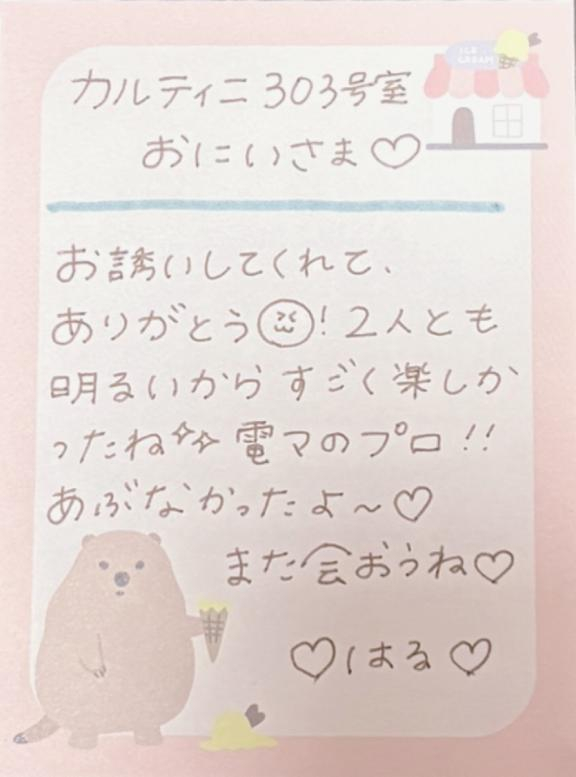 ICE
CREAM
カルティニ303号室
おにいさま♡
お誘いしてくれて、
ありがとう!2人とも
明るいからすごく楽しか
ったね✨電マのプロ!!
あぶなかったよ〜♡
また会おうね♡
♡はる♡